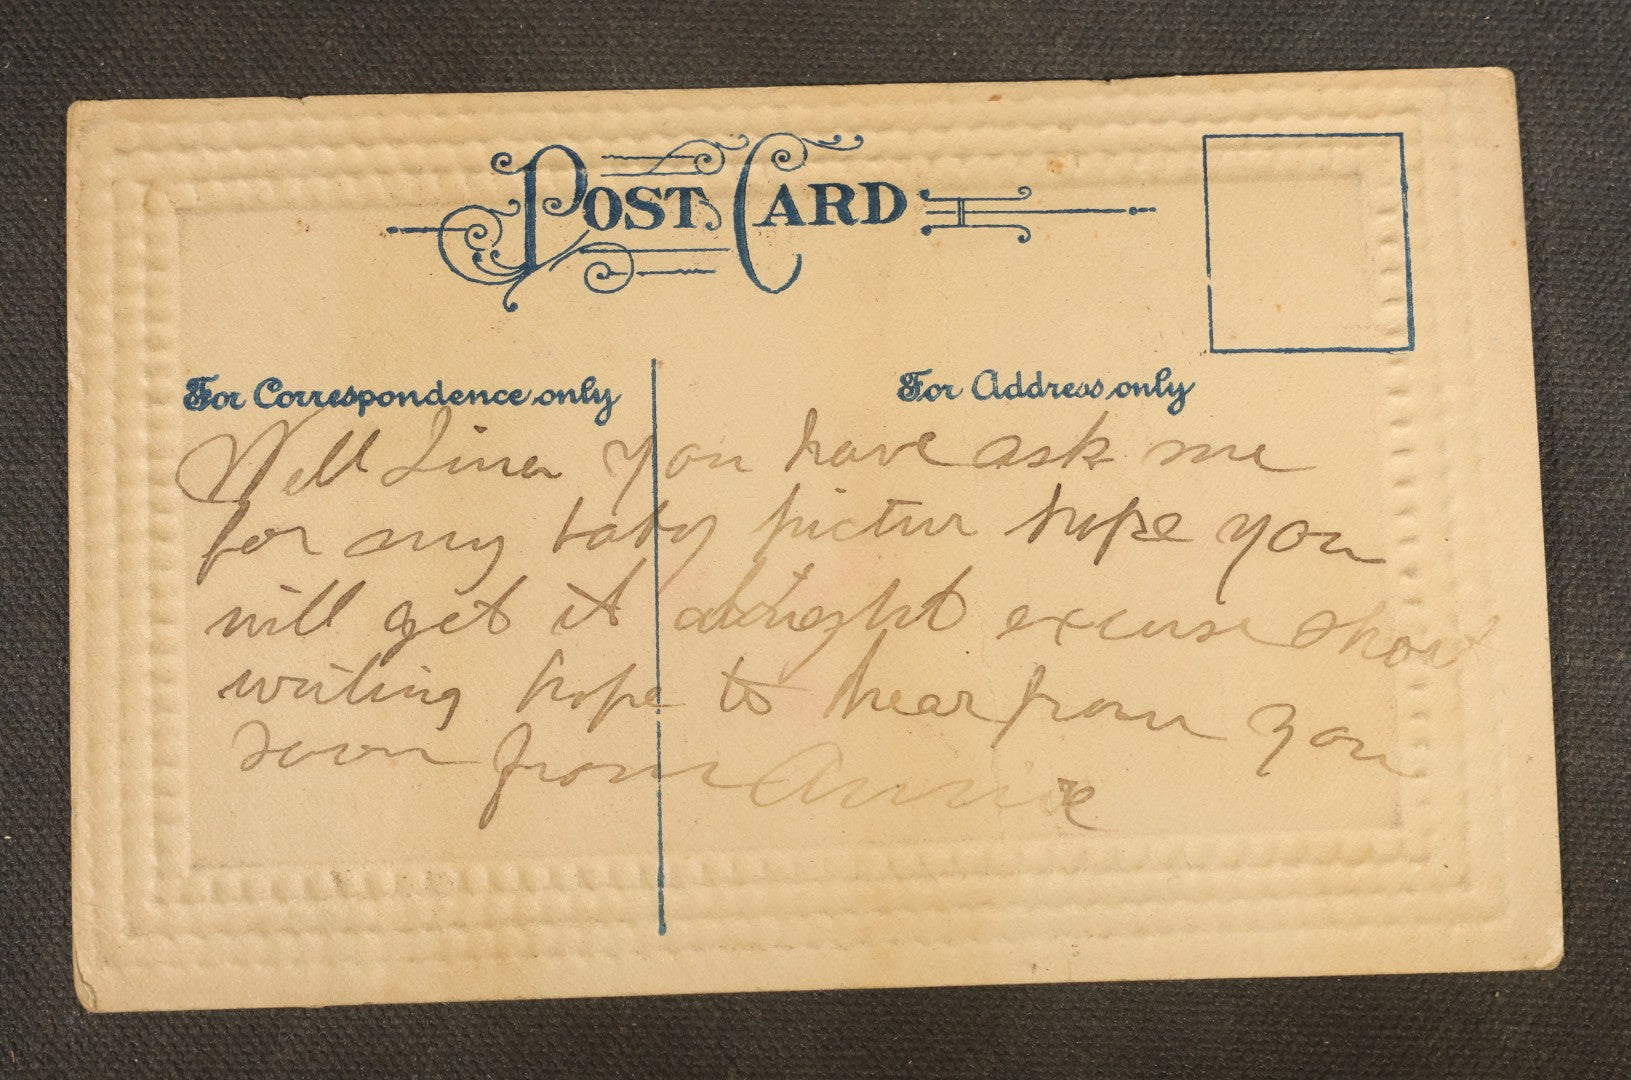 POST CARD
For Correspondence only
For Address only
Well Lina you have ask me
for my baby pictur hope you
will get it alright excuse short
writing hope to hear from you
soon from Annie